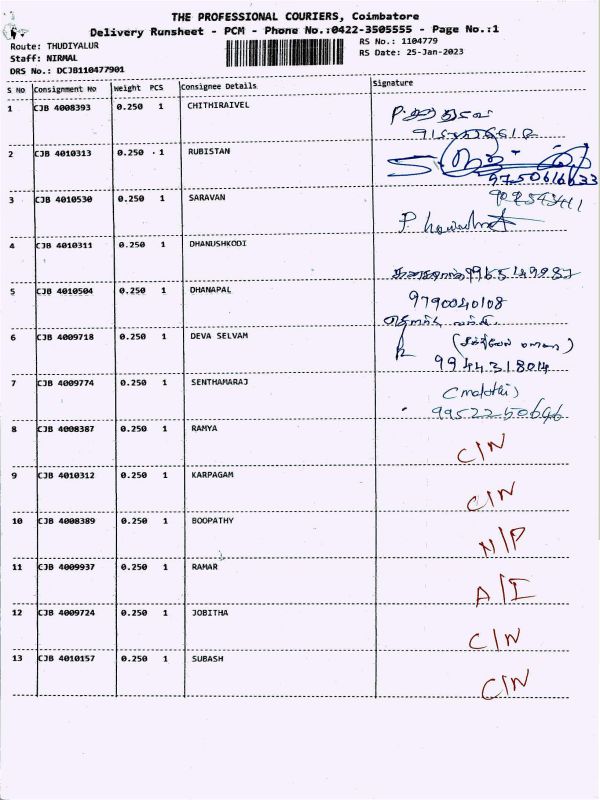 THE PROFESSIONAL COURIERS, Coimbatore
Delivery Runsheet - PCM - Phone No.:0422-3505555 - Page No.:1
Route: THUDIYALUR
RS No.: 1104779
Staff: NIRMAL
RS Date: 25-Jan-2023
DRS No.: DCJB110477901
S No Consignment No Weight PCS Consignee Details Signature
1 CJB 4008393 0.250 1 CHITHIRAIVEL
2 CJB 4010313 0.250 1 RUBISTAN
9750616633
3 CJB 4010530 0.250 1 SARAVAN
4 CJB 4010311 0.250 1 DHANUSHKODI
5 CJB 4010504 0.250 1 DHANAPAL
9790040108
6 CJB 4009718 0.250 1 DEVA SELVAM
9944318014
7 CJB 4009774 0.250 1 SENTHAMARAJ
(malathi)
9952250646
8 CJB 4008387 0.250 1 RAMYA C/N
9 CJB 4010312 0.250 1 KARPAGAM C/N
10 CJB 4008389 0.250 1 BOOPATHY N/P
11 CJB 4009937 0.250 1 RAMAR A/I
12 CJB 4009724 0.250 1 JOBITHA C/N
13 CJB 4010157 0.250 1 SUBASH C/N